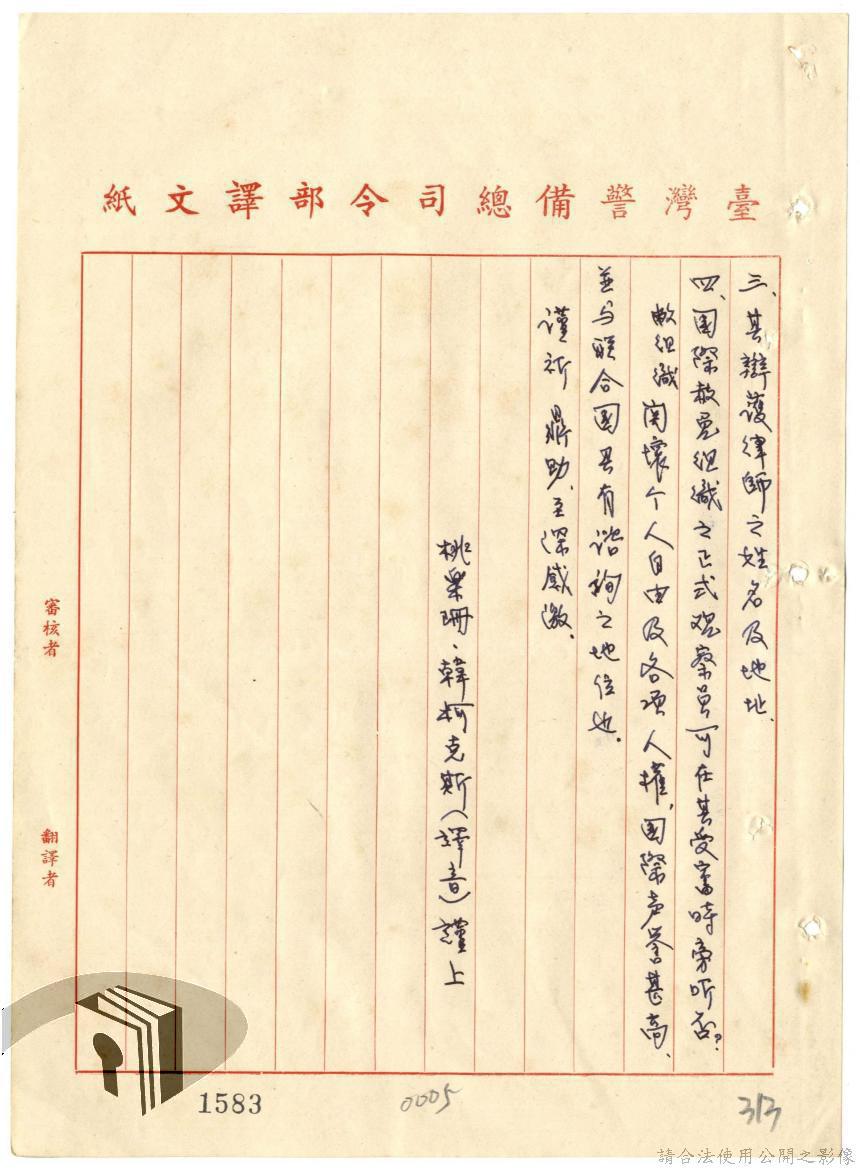 臺灣警備總司令部譯文紙
三、其辯護律師之姓名及地址.
四、国際赦免组織之正式观察員可在其受審時旁听否?
敝组織関懷个人自由及各項人權,国際声誉甚高、
並与联合国具有谘詢之地位也.
謹祈 鼎助、至深感激.
桃樂珊、韓柯克斯(譯音)謹上
審核者
翻譯者
1583
0005
313
請合法使用公開之影像